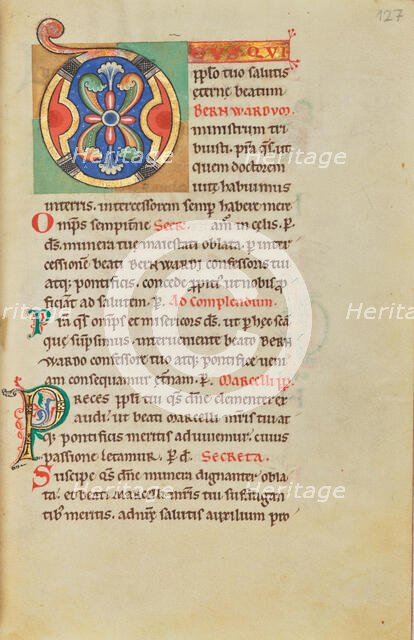 127
DEUS QUI
pplo tuo salutis
eterne beatum
BERNWARDVM
ministrum tri
buisti. pra qs. ut
quem doctorem
vite habuimus
in terris. intercessorem semp habere mere
amur in celis. p.
Omps sempiterne Secr.
ds. munera tue maiestati oblata. p inter
cessione beati BERNWARDI confessoris tui
atq; pontificis. concede
ficiant ad salutem. p. Ad complendum.
Pra qs omps et misericors ds. ut p hec que
que supsimus. interveniente beato BERN
WARDO confessore tuo atq; pontifice veni
am consequamur eternam. p. MARCELLI PP.
Preces ppli tui qs dne clementer ex
audi. ut beati Marcelli mris tui at
q; pontificis meritis adiuvemur. cuius
passione letamur. p d. SECRETA.
Suscipe qs dne munera dignanter obla
ta. et beati MARCELLI mris tui suffragan
tib; meritis. ad nre salutis auxilium pro
Heritage
Heritage
Heritage
Heritage
Heritage
Heritage
Heritage
Heritage
Heritage